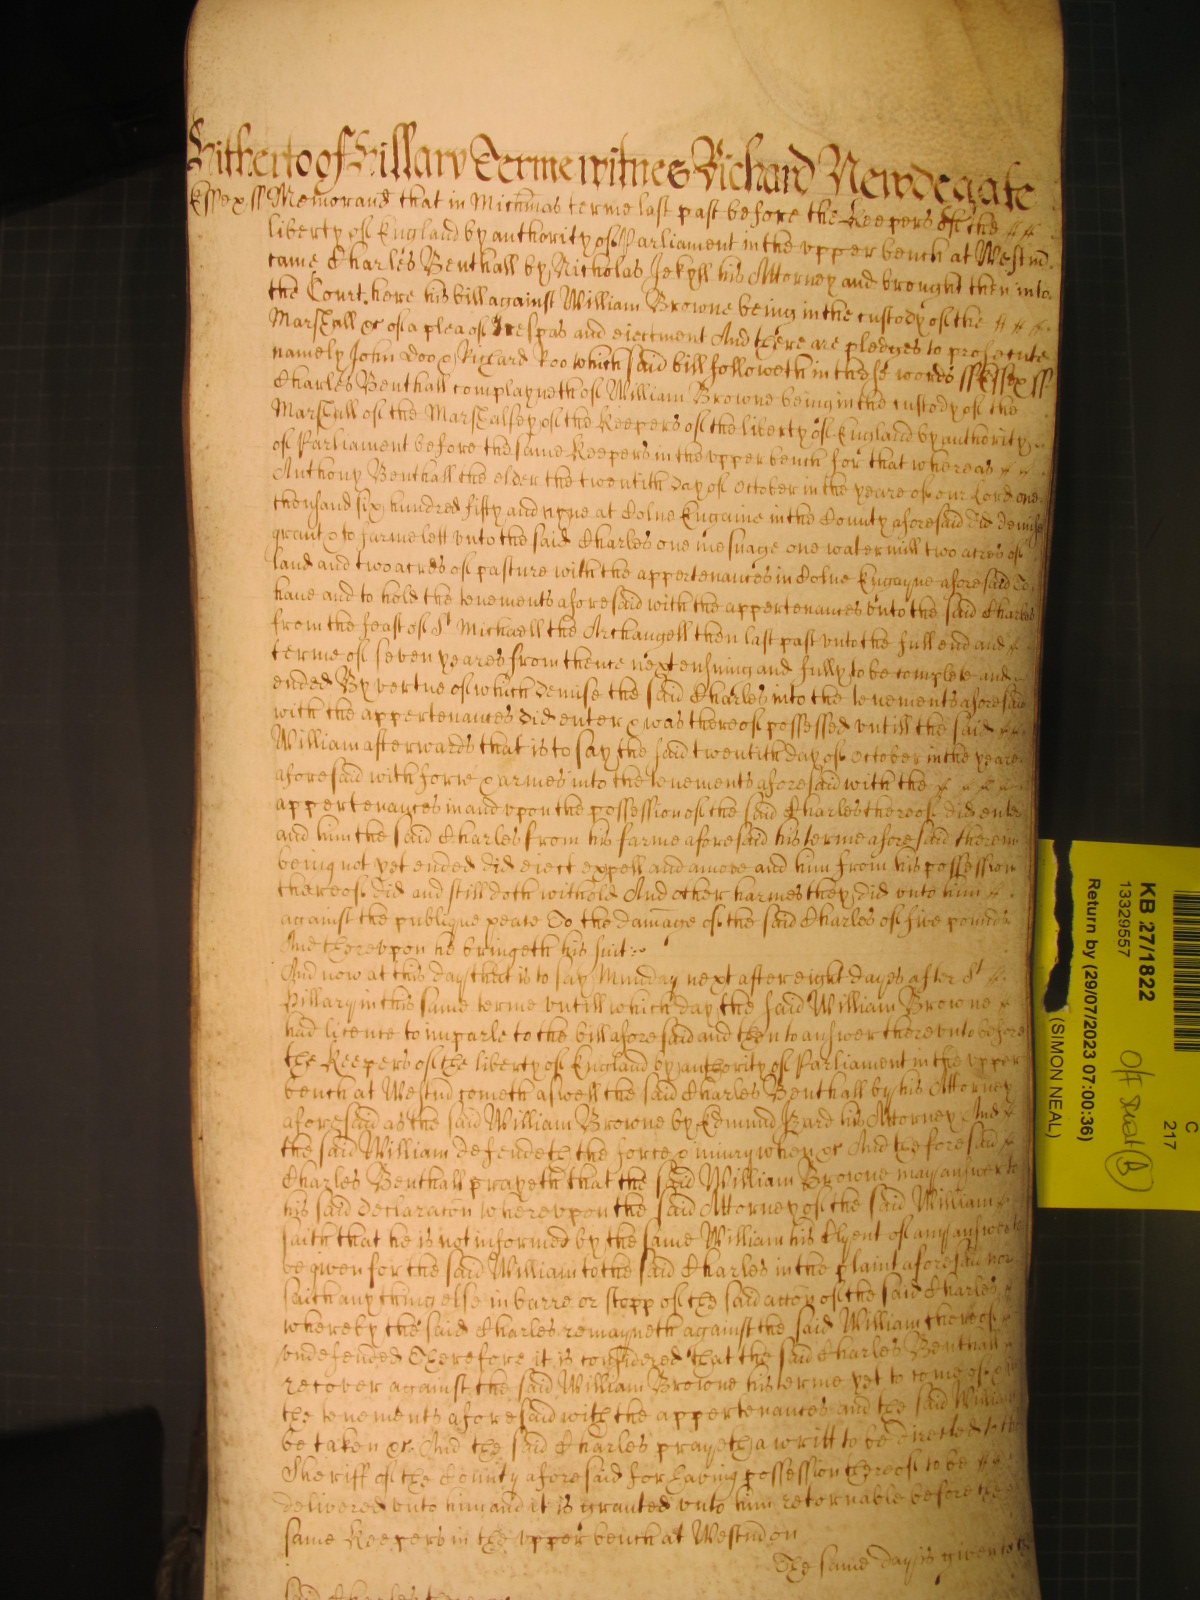 Hitherto of Hillary Terme witnes Richard Newdegate
Essex ss Memorand that in Michmas terme last past before the Keepers of the
liberty of England by authority of Parliament in the vpper bench at Westmr
came Charles Benthall by Nicholas Jekyll his Attorney and brought then into
the Court here his bill against William Browne being in the custody of the
Marshall &c of a plea of Trespas and eiectment And there are pledges to prosecute
namely John Doo & Richard Roo which said bill followeth in these words ss Essex ss
Charles Benthall complayneth of William Browne being in the custody of the
Marshall of the Marshalsey of the Keepers of the liberty of England by authority
of Parliament before the same Keepers in the vpper bench for that whereas
Anthony Benthall the elder the twentith day of October in the yeare of our Lord one
thousand six hundred fifty and nyne at Colne Engaine in the County aforesaid did demise
grant & to farme lett vnto the said Charles one mesuage one watermill two acres of
land and two acres of pasture with the appertenances in Colne Engayne aforesaid To
haue and to hold the tenements aforesaid with the appertenances vnto the said Charles
from the feast of St Michaell the Archangell then last past vnto the full end and
terme of seven yeares from thence next ensuing and fully to be complete and
ended By vertue of which demise the said Charles into the tenements aforesaid
with the appertenances did enter & was thereof possessed vntill the said
William afterwards that is to say the said twentith day of October in the yeare
aforesaid with force & armes into the tenements aforesaid with the
appertenances in and vpon the possession of the said Charles thereof did enter
and him the said Charles from his farme aforesaid his terme aforesaid therein
being not yet ended did eiect expell and amove and him from his possession
thereof did and still doth withold And other harmes they did vnto him
against the publique peace To the damage of the said Charles of five pounds
And therevpon he bringeth his suit
And now at this day that is to say Munday next after eight dayes after St
Hillary in this same terme vntill which day the said William Browne
had licence to imparle to the bill aforesaid and then to answer therevnto before
the Keepers of the liberty of England by authority of Parliament in the vpper
bench at Westmr cometh aswell the said Charles Benthall by his Attorney
aforesaid as the said William Browne by Edmund Bard his Attorney And
the said William defendeth the force & iniury when &c And the foresaid
Charles Benthall prayeth that the said William Browne may answer to
his said declaracon wherevpon the said Attorney of the said William
saith that he is not informed by the same William his Clyent of any answer to
be given for the said William to the said Charles in the plaint aforesaid nor
saith any thing else in barre or stopp of the said accon of the said Charles
whereby the said Charles remayneth against the said William thereof
vndefended Therefore it is considered that the said Charles Benthall
recover against the said William Browne his terme yet to come of & in
the tenements aforesaid with the appertenances and the said William
be taken &c And the said Charles prayeth a writt to be directed to the
Sheriff of the County aforesaid for having possession thereof to be
delivered vnto him and it is granted vnto him retornable before the
same Keepers in the vpper bench at Westm on
The same day is given to the
said Charles
C
217
KB 27/1822
13329557
Return by (29/07/2023 07:00:36)
(SIMON NEAL)